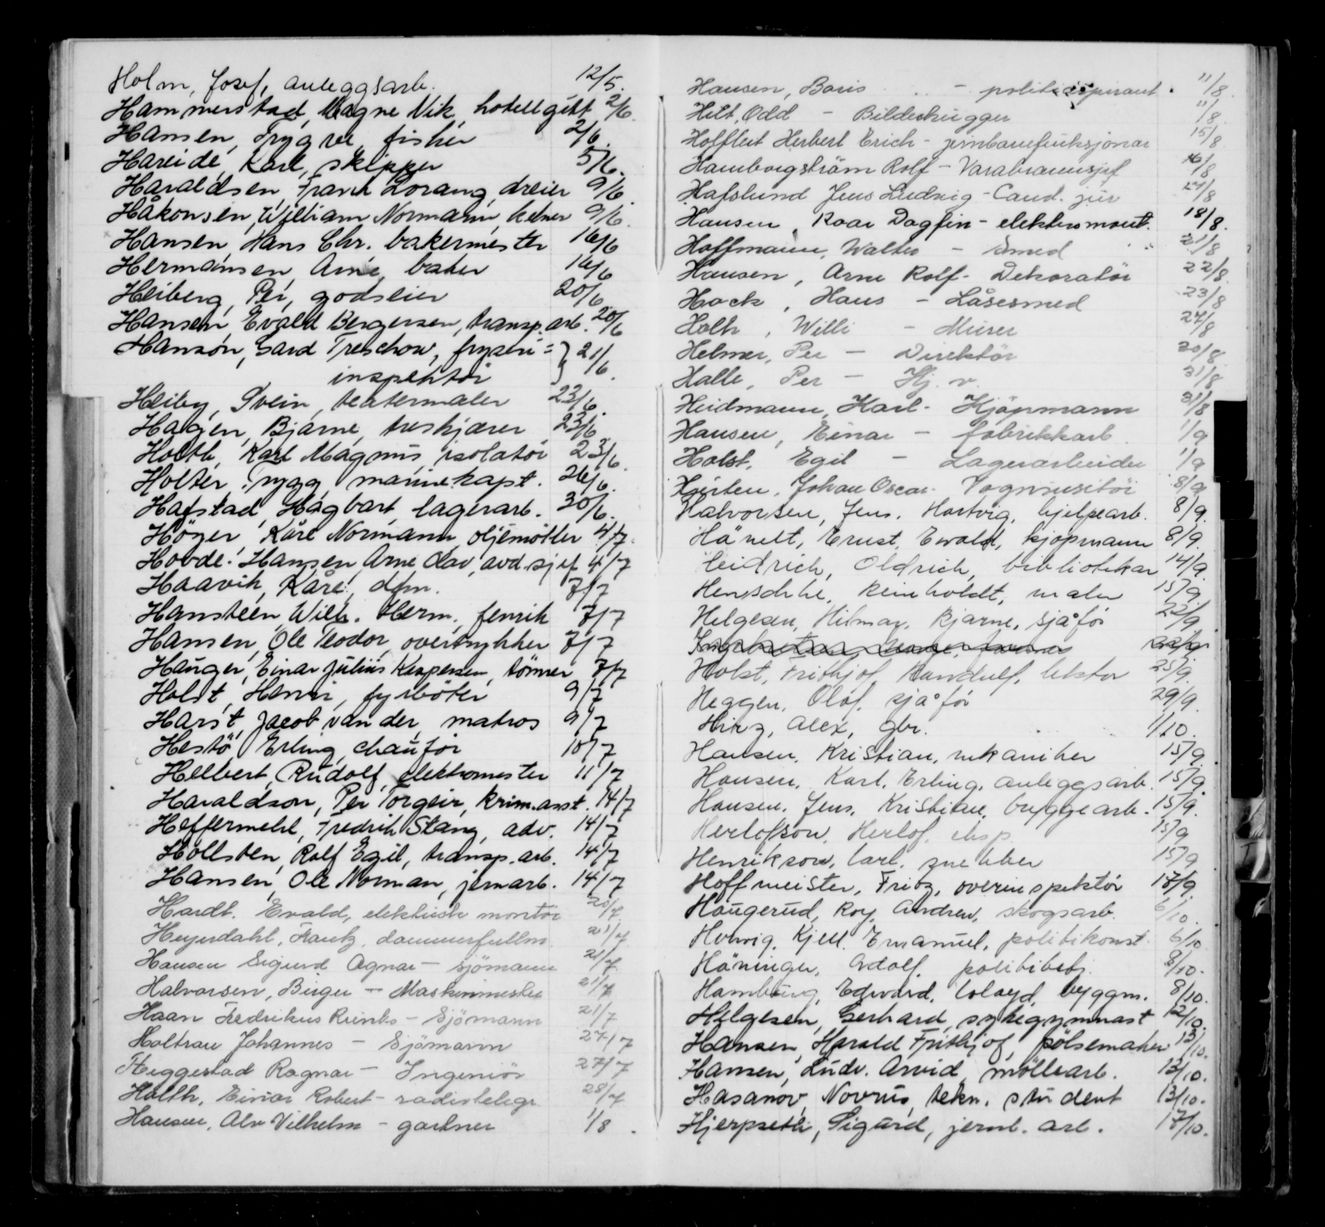 Holm, Josef, anleggsarb. 12/5.
Hammerstad, Magne Vik, hotellgutt 2/6.
Hansen, Trygve, fisker 2/6.
Hareide, Karl, skipper 5/6.
Haraldsen, Frank Lorang, dreier 9/6.
Håkonsen, William Normann, kelner 9/6.
Hansen, Hans Chr. bakermester 16/6
Hermansen, Arne, baker 16/6
Heiberg, Per, godseier 20/6
Hansen, Evald Bergersen, transp. arb. 20/6
Hanson, Gard Treschow, fryseri= } 21/6.
inspektör
Heiby, Svein, teatermaler 23/6.
Hagen, Bjarne, treskjærer 23/6
Holth, Karl Magnus, isolatör 23/6.
Holter, Trygg, marinekapt. 26/6.
Hafstad, Hagbart lagerarb. 30/6.
Höger, Kåre Normann oljemöller 4/7.
Hovde-Hansen, Arne Olav, avd. sjef 4/7
Haavik, Kåre, dfm. 7/7
Hansteen, Wilh. Herm. fenrik 7/7
Hansen, Ole Teodor, overtrykker 7/7
Hauger, Einar Julius Kaspersen, tömmer 7/7
Holst, Henri, fyrböter 9/7
Harst, Jacob van der, matros 9/7
Hestö, Erling, chauför 10/7
Helbert, Rudolf, elektromester 11/7
Haraldson, Per Torgeir, krim.asst. 14/7
Heffermehl, Fredrik Stang, adv. 14/7
Hollsten, Rolf Egil, transp. arb. 14/7
Hansen, Ole Norman, jernarb. 14/7
Hardt, Evald, elektrisk montör 20/7
Heyerdahl, Frantz, dommerfullm. 21/7
Hansen Sigurd Agnar - sjömann 21/7
Halvorsen, Birger - Maskinmester 21/7
Haan Fredrikus - Sjömann 21/7
Holtrau Johannes - Sjömann 27/7
Heggestad Ragnar - Ingeniör 27/7
Holth, Einar Robert - radiotelegr. 28/7
Hansen, Alv Vilhelm - gartner 1/8.
Hansen, Boris - politiaspirant. 11/8.
Hilt, Odd - Bildehugger 11/8
Holfleit Herbert Erich - jernbanefunksjonær 15/8
Hamborgström Rolf - Varabrannsjef 16/8
Hafslund Jens Ludvig - Cand. jur 17/8
Hansen, Roar Dagfin - elektromont. 18/8.
Hoffmann, Walter - Smed 21/8
Hansen, Arne Rolf - Dekoratör 22/8
Hock, Hans - Låsesmed 23/8
Holh, Willi - Murer 24/8
Helmer, Per - Direktör 30/8
Halle, Per - Hj. v. 31/8
Heidmann, Karl - Kjöpmann 31/8
Hansen, Einar - fabrikkarb. 1/9
Holst, Egil - Lagerarbeider 1/9
Johan Oscar. Vognvisitör 8/9
Halvorsen, Jens. Hartvig, hjelpearb. 8/9.
Hänelt, Ernst, Ewald, kjöpmann 8/9.
Heidrich, Oldrich, bibliotekar 14/9.
Hentschke, Reinholdt, maler 15/9
Helgesen, Hilmar, Bjarne, sjåför 22/9
Holst, Frithjof, Randulf, lektor 25/9.
Heggen, Olaf, sjåför 29/9.
Alex, gbr. 1/10.
Hansen, Kristian, mekaniker 15/9.
Hansen, Karl, Erling, anleggsarb. 15/9.
Hansen, Jens, Kristian, bryggearb. 15/9.
Herlofson, Herlof, eksp. 15/9
Henrikson, Carl, snekker 15/9
Hoffmeister, Fritz, overinspektör 18/9.
Haugerud, Roy, Andrew, skogsarb. 6/10.
Helwig, Kjell, Emanuel, politikonst. 6/10
Häninger, Adolf, politibetj. 8/10.
Hamburg, Edward, Lloyd, byggm. 8/10.
Helgesen, Gerhard, sykegymnast 12/10
Hansen, Harald Frithjof, pölsemaker 13/10.
Hansen, Ludv. Arvid, möllearb. 13/10.
Hasanov, Novrus, tekn. student 13/10.
Hjerpseth, Sigurd, jernb. arb. 17/10.